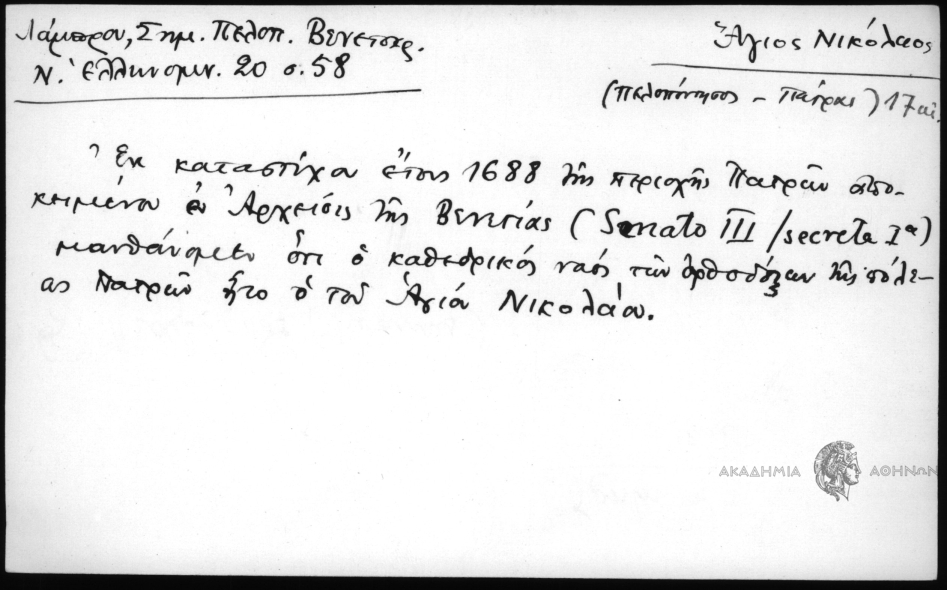 Λάμπρου, Σημ. Πελοπ. Βενετοκρ.
Ν. Ἑλληνομν. 20 σ. 58
Ἅγιος Νικόλαος
(Πελοπόννησος - Πάτραι) 17 αἰ.
Ἐκ καταστίχου ἔτους 1688 τῆς περιοχῆς Πατρῶν ἀπο-
κειμένου ἐν Ἀρχείοις τῆς Βενετίας (Senato III /secreta Iα)
μανθάνομεν ὅτι ὁ καθεδρικός ναός τῶν ὀρθοδόξων τῆς πόλε-
ως Πατρῶν ἦτο ὁ τοῦ Ἁγίου Νικολάου.
ΑΚΑΔΗΜΙΑ ΑΘΗΝΩΝ